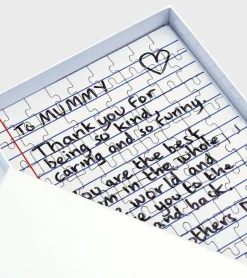 TO MUMMY
Thank you for
being so kind
caring and so funny.
you are the best
in the whole
world and
you to the
back